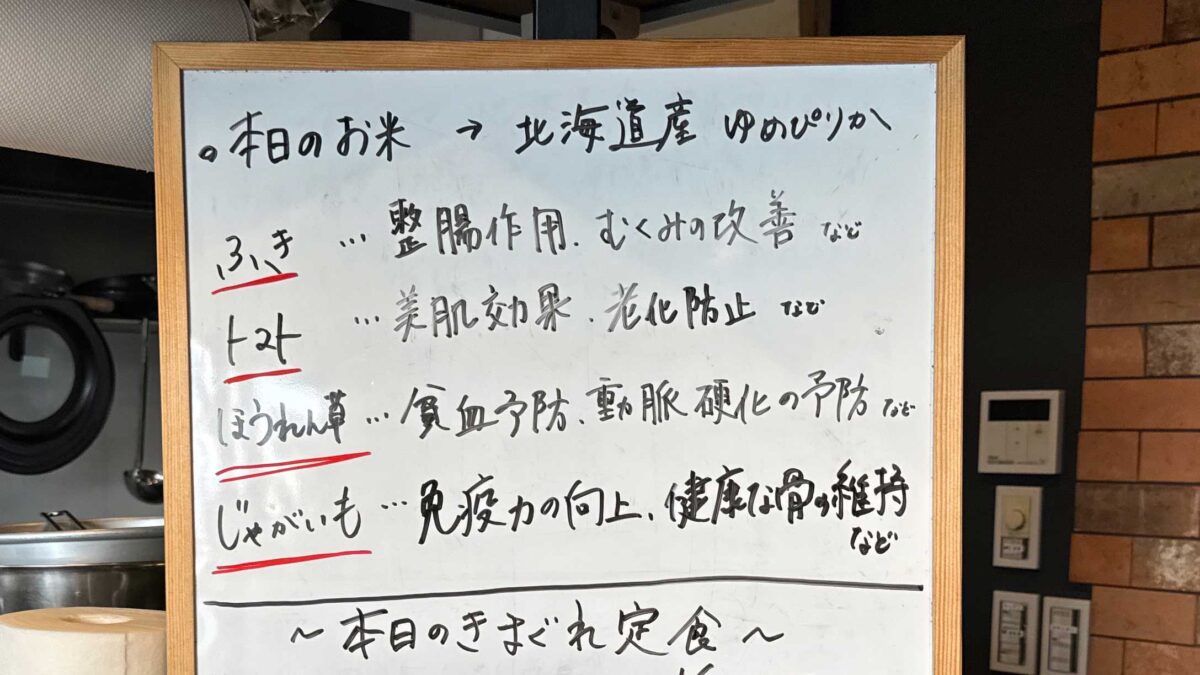 。本日のお米 → 北海道産 ゆめぴりか
ふき … 整腸作用、むくみの改善 など
トマト … 美肌効果、老化防止 など
ほうれん草 … 貧血予防、動脈硬化の予防 など
じゃがいも … 免疫力の向上、健康な骨の維持
など
～本日のきまぐれ定食～